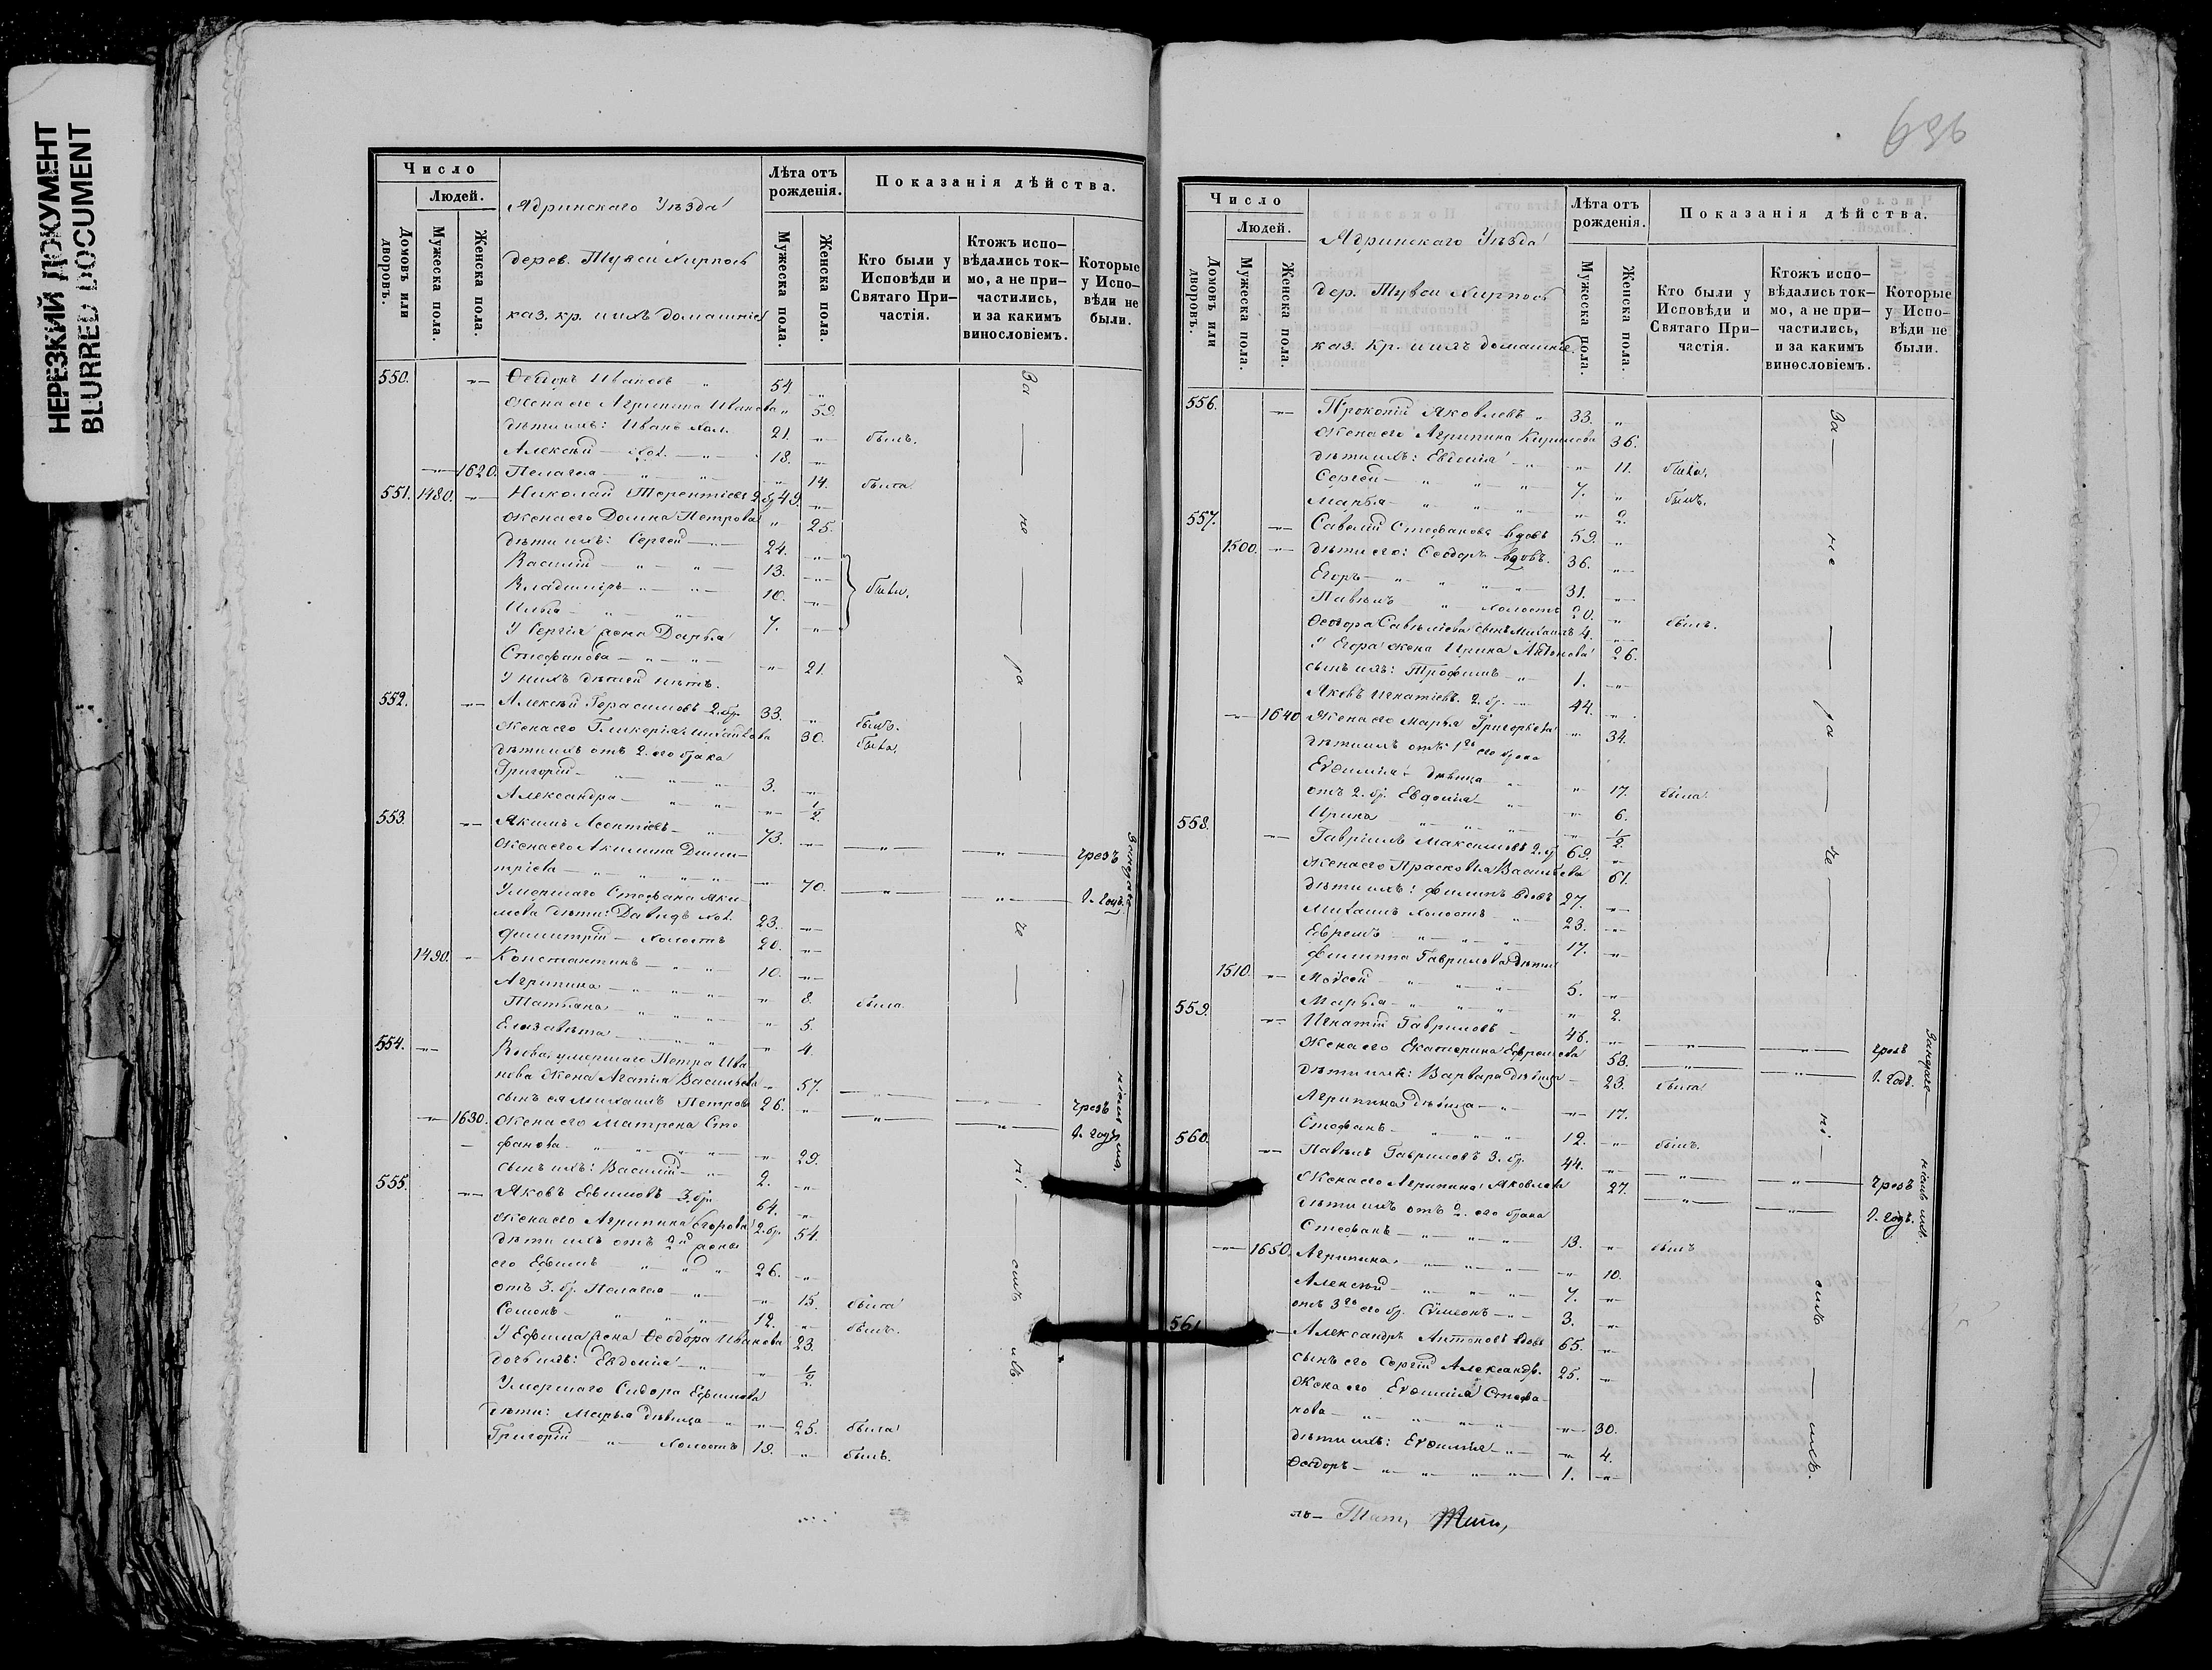 НЕРЕЗКИЙ ДОКУМЕНТ
BLURRED DOCUMENT
Число
Людей.
Домовъ или дворовъ.
Мужеска пола.
Женска пола.
Ядринскаго Уѣзда
дерев. Туваи Хирпось
каз. кр. и ихъ домашніе
Лѣта отъ рожденія.
Мужеска пола.
Женска пола.
Показанія дѣйства.
Кто были у Исповѣди и Святаго При-частія.
Ктожъ испо-вѣдались ток-мо, а не при-частились, и за какимъ винословіемъ.
Которые у Испо-вѣди не были.
550. Ѳеодоръ Ивановъ 54
Жена его Агрипина Иванова 59.
дѣти ихъ: Иванъ хол. 21. былъ.
Алексѣй хол. 18.
1620. Пелагея 14. была.
551. 1480. Николай Терентіевъ 2 б. 49.
Жена его Домна Петрова 25.
дѣти ихъ: Сергей 24.
Василій 13.
Владиміръ 10. были.
Илья 7.
У Сергія жена Дарья
Стефанова 21.
У нихъ дѣтей нѣтъ.
552. Алексѣй Герасимовъ 2. бр. 33. былъ.
Жена его Гликерія Михайлова 30. была.
дѣти ихъ отъ 2. его брака
Григорій 3.
Александра 1/2
553. Якимъ Леонтіевъ 73.
Жена его Акилина Дими- чрезъ
тріева 70. 1. годъ.
Умершаго Стефана Яки-
мова дѣти: Давидъ хол. 23.
Филиттрій холостъ 20.
1490. Константинъ 10.
Агрипина 8. была.
Татьяна 5.
Елизавета 4.
554. Вдова умершаго Петра Ива
нова жена Агапія Васильева 57.
сынъ ея Михаилъ Петровъ 26. чрезъ
1630. Жена его Матрена Сте 1. годъ
фанова 29.
сынъ ихъ: Василій 2.
555. Яковъ Ефимовъ 3. бр. 64.
Жена его Агрипина Егорова 2. бр. 54.
дѣти ихъ отъ 2й жены
его Ефимъ 26.
отъ 3. бр. Пелагея 15. была
Семенъ 12. былъ.
У Ефима жена Ѳеодора Иванова 23.
дочь ихъ: Евдокія 1/2.
Умершаго Сидора Ефимова
дѣти: Марья дѣвица 25. была
Григорій холостъ 19. былъ.
За не ра че ні емъ
636
Число
Людей.
Домовъ или дворовъ.
Мужеска пола.
Женска пола.
Ядринскаго Уѣзда
дер. Туваи Хирпось
каз. кр. и ихъ домашніе.
Лѣта отъ рожденія.
Мужеска пола.
Женска пола.
Показанія дѣйства.
Кто были у Исповѣди и Святаго При-частія.
Ктожъ испо-вѣдались ток-мо, а не при-частились, и за какимъ винословіемъ.
Которые у Испо-вѣди не были.
556. Прокопій Яковлевъ 33.
Жена его Агрипина Кирилова 36.
дѣти ихъ: Евдокія 11. была.
Сергей 7. былъ.
Марья 2.
557. Савелій Стефановъ вдовъ 59.
1500. дѣти его: Ѳеодоръ вдовъ. 36.
Егоръ 31.
Павелъ холостъ 20. былъ.
Ѳеодора Савельева сынъ Михаилъ 4.
У Егора жена Ирина Антонова 26.
сынъ ихъ: Трофимъ 1.
Яковъ Игнатіевъ. 2. бр. 44.
1640 Жена его Марья Григорьева 34.
дѣти ихъ отъ 1го его брака
Евфимія дѣвица 17. была
отъ 2. бр. Евдокія 6.
Ирина 1/2
558. Гавріилъ Максимовъ 2. б. 69.
Жена его Прасковья Васильева 61.
дѣти ихъ: Филипъ вдовъ 27.
Михаилъ холостъ 23.
Ефремъ 17.
Филиппа Гаврилова дѣти
1510. Мойсей 5.
Марья 2.
559. Игнатій Гавриловъ 46. чрезъ
Жена его Екатерина Ефремова 53. 1. годъ.
дѣти ихъ: Варвара дѣвица 23. была
Агрипина дѣвица 17.
Стефанъ 12. былъ.
560. Павелъ Гавриловъ 3. бр. 44.
Жена его Агрипина Яковлева 27. чрезъ
дѣти ихъ отъ 2. его брака 1. годъ.
Стефанъ 13. былъ
1650. Агрипина 10.
Алексѣй 7.
отъ 3го его бр. Симеонъ 3.
561 Александръ Антоновъ вдовъ 65.
сынъ его Сергій Александр. 25.
Жена его Евфимія Стефа-
нова 30.
дѣти ихъ: Евфимія 4.
Ѳедоръ 1.
За не ра че ні емъ